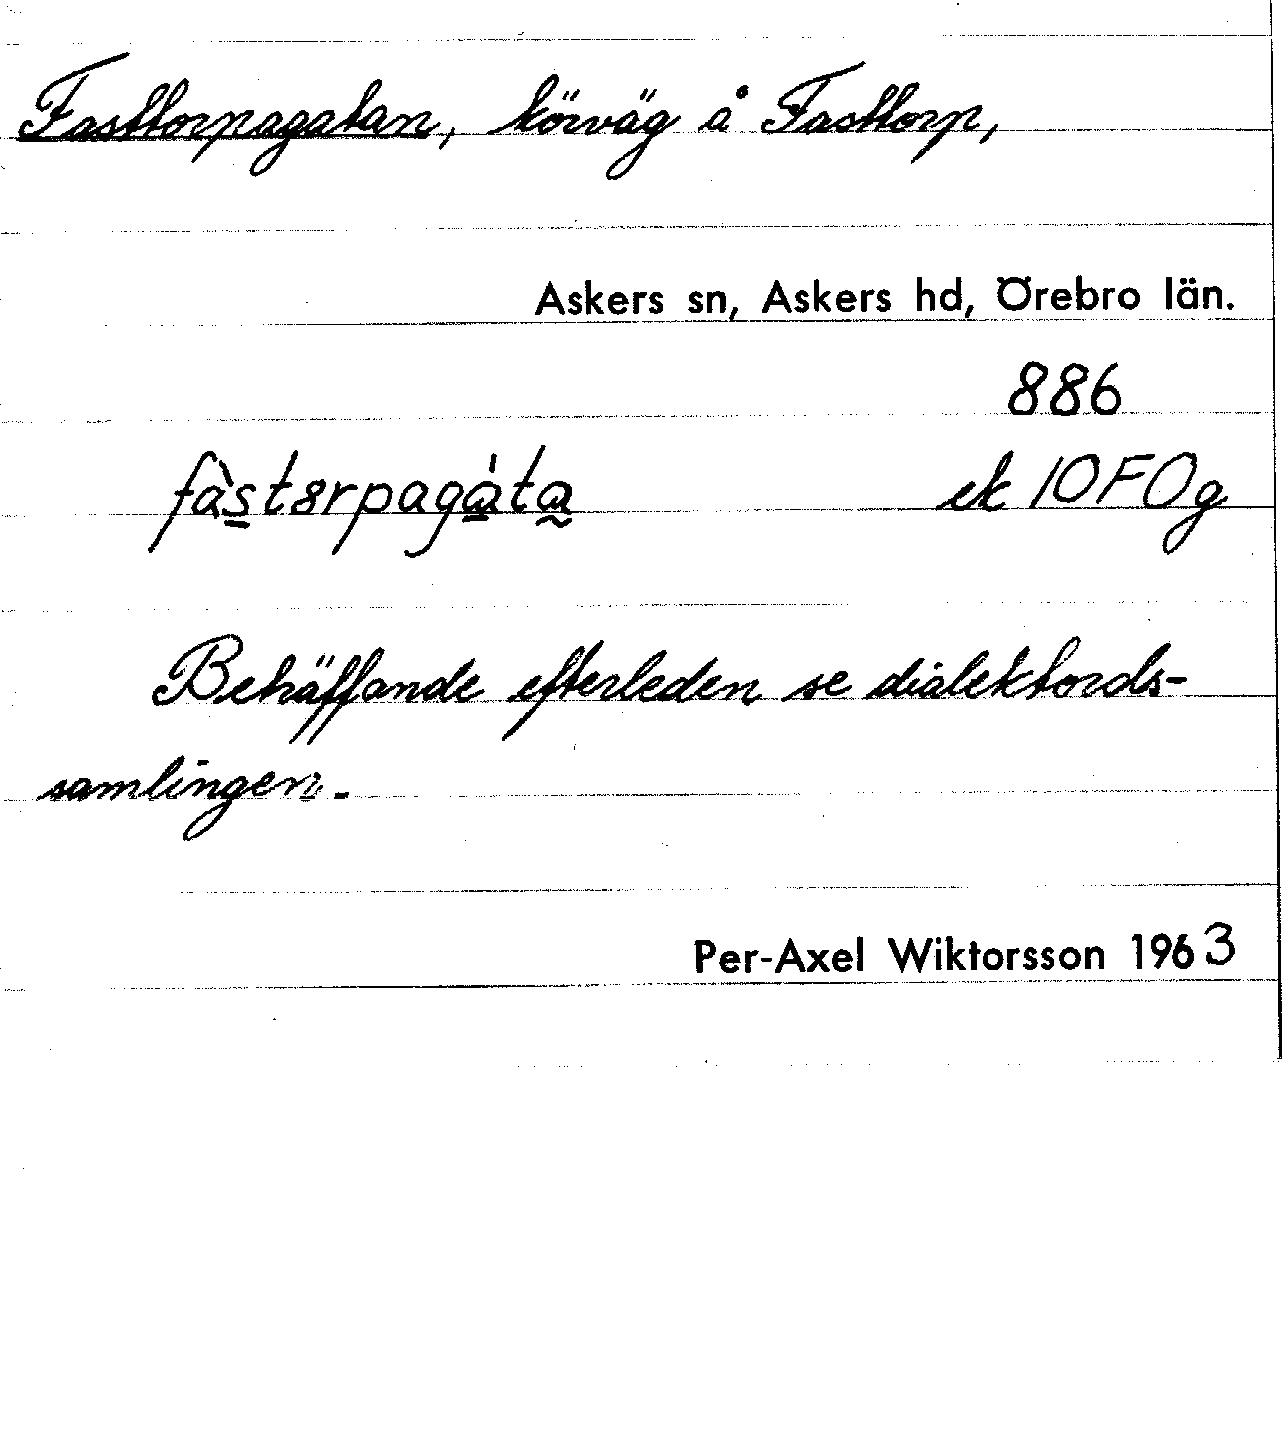 Fasttorpagatan, körväg å Fasttorp,
Askers sn, Askers hd, Örebro län.
886
fàst8rpagàta ek 10F0g
Beträffande efterleden se dialektords-
samlingen.
Per-Axel Wiktorsson 1963